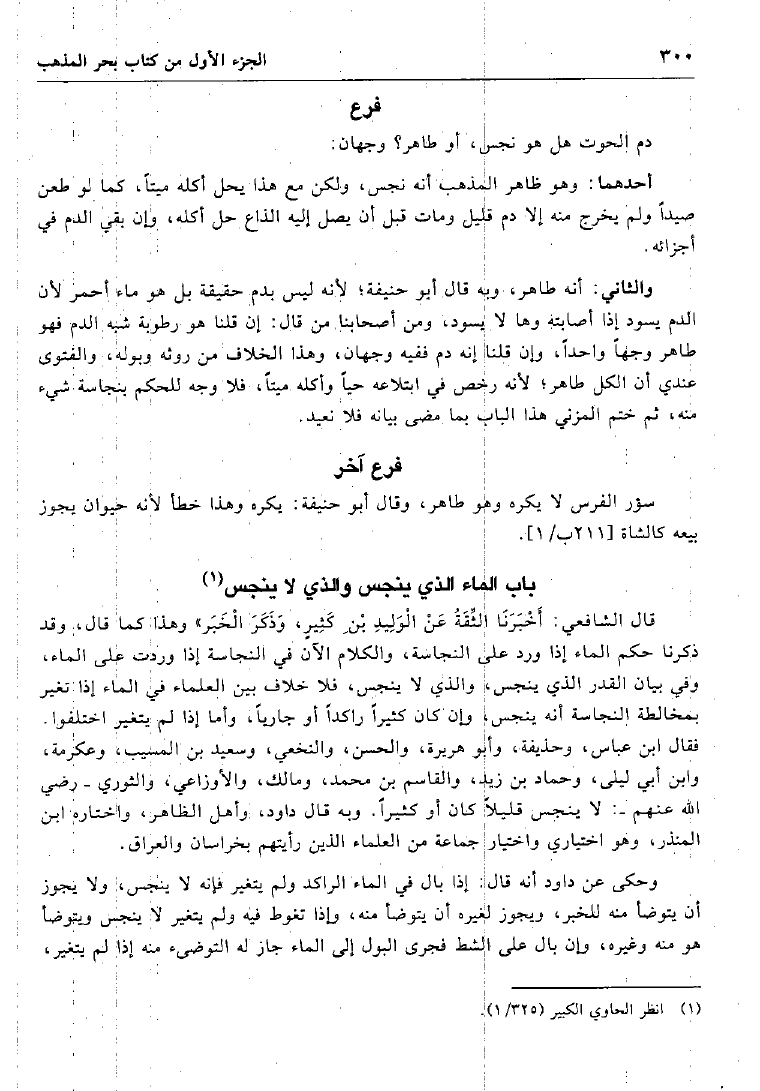 ٣٠٠ الجزء الأول من كتاب بحر المذهب
فرع
دم الحوت هل هو نجس، أو طاهر؟ وجهان:
أحدهما: وهو ظاهر المذهب أنه نجس، ولكن مع هذا يحل أكله ميتاً، كما لو طعن
صيداً ولم يخرج منه إلا دم قليل ومات قبل أن يصل إليه الذاع حل أكله، وإن بقي الدم في
أجزائه.
والثاني: أنه طاهر، وبه قال أبو حنيفة؛ لأنه ليس بدم حقيقة بل هو ماء أحمر لأن
الدم يسود إذا أصابته وها لا يسود، ومن أصحابنا من قال: إن قلنا هو رطوبة شبه الدم فهو
طاهر وجهاً واحداً، وإن قلنا إنه دم ففيه وجهان، وهذا الخلاف من روثه وبوله، والفتوى
عندي أن الكل طاهر؛ لأنه رخص في ابتلاعه حياً وأكله ميتاً، فلا وجه للحكم بنجاسة شيء
منه، ثم ختم المزني هذا الباب بما مضى بيانه فلا نعيد.
فرع آخر
سؤر الفرس لا يكره وهو طاهر، وقال أبو حنيفة: يكره وهذا خطأ لأنه حيوان يجوز
بيعه كالشاة [٢١١ب/١].
باب الماء الذي ينجس والذي لا ينجس(١)
قال الشافعي: أَخْبَرَنَا الثِّقَةُ عَنْ الْوَلِيدِ بْنِ كَثِيرٍ، وَذَكَرَ الْخَبَر» وهذا كما قال، وقد
ذكرنا حكم الماء إذا ورد على النجاسة، والكلام الآن في النجاسة إذا وردت على الماء،
وفي بيان القدر الذي ينجس، والذي لا ينجس، فلا خلاف بين العلماء في الماء إذا تغير
بمخالطة النجاسة أنه ينجس، وإن كان كثيراً راكداً أو جارياً، وأما إذا لم يتغير اختلفوا.
فقال ابن عباس، وحذيفة، وأبو هريرة، والحسن، والنخعي، وسعيد بن المسيب، وعكرمة،
وابن أبي ليلى، وحماد بن زيد، والقاسم بن محمد، ومالك، والأوزاعي، والثوري ـ رضي
الله عنهم ـ: لا ينجس قليلاً كان أو كثيراً. وبه قال داود، وأهل الظاهر، واختاره ابن
المنذر، وهو اختياري واختيار جماعة من العلماء الذين رأيتهم بخراسان والعراق.
وحكى عن داود أنه قال: إذا بال في الماء الراكد ولم يتغير فإنه لا ينجس، ولا يجوز
أن يتوضأ منه للخبر، ويجوز لغيره أن يتوضأ منه، وإذا تغوط فيه ولم يتغير لا ينجس ويتوضأ
هو منه وغيره، وإن بال على الشط فجرى البول إلى الماء جاز له التوضىء منه إذا لم يتغير،
(١) انظر الحاوي الكبير (١/٣٢٥).